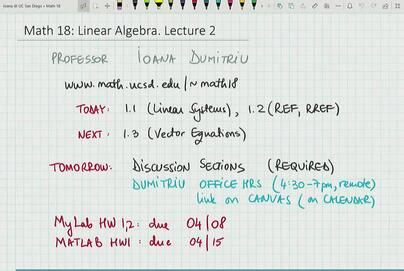 Ioana @ UC San Diego • Math 18
Math 18: Linear Algebra. Lecture 2
PROFESSOR IOANA DUMITRIU
www.math.ucsd.edu/~math18
TODAY: 1.1 (Linear Systems), 1.2 (REF, RREF)
NEXT: 1.3 (Vector Equations)
TOMORROW: DISCUSSION SECTIONS (REQUIRED)
DUMITRIU OFFICE HRS (4:30-7pm, remote)
link on CANVAS (on CALENDAR)
MyLab HW 1,2: due 04/08
MATLAB HW1: due 04/15